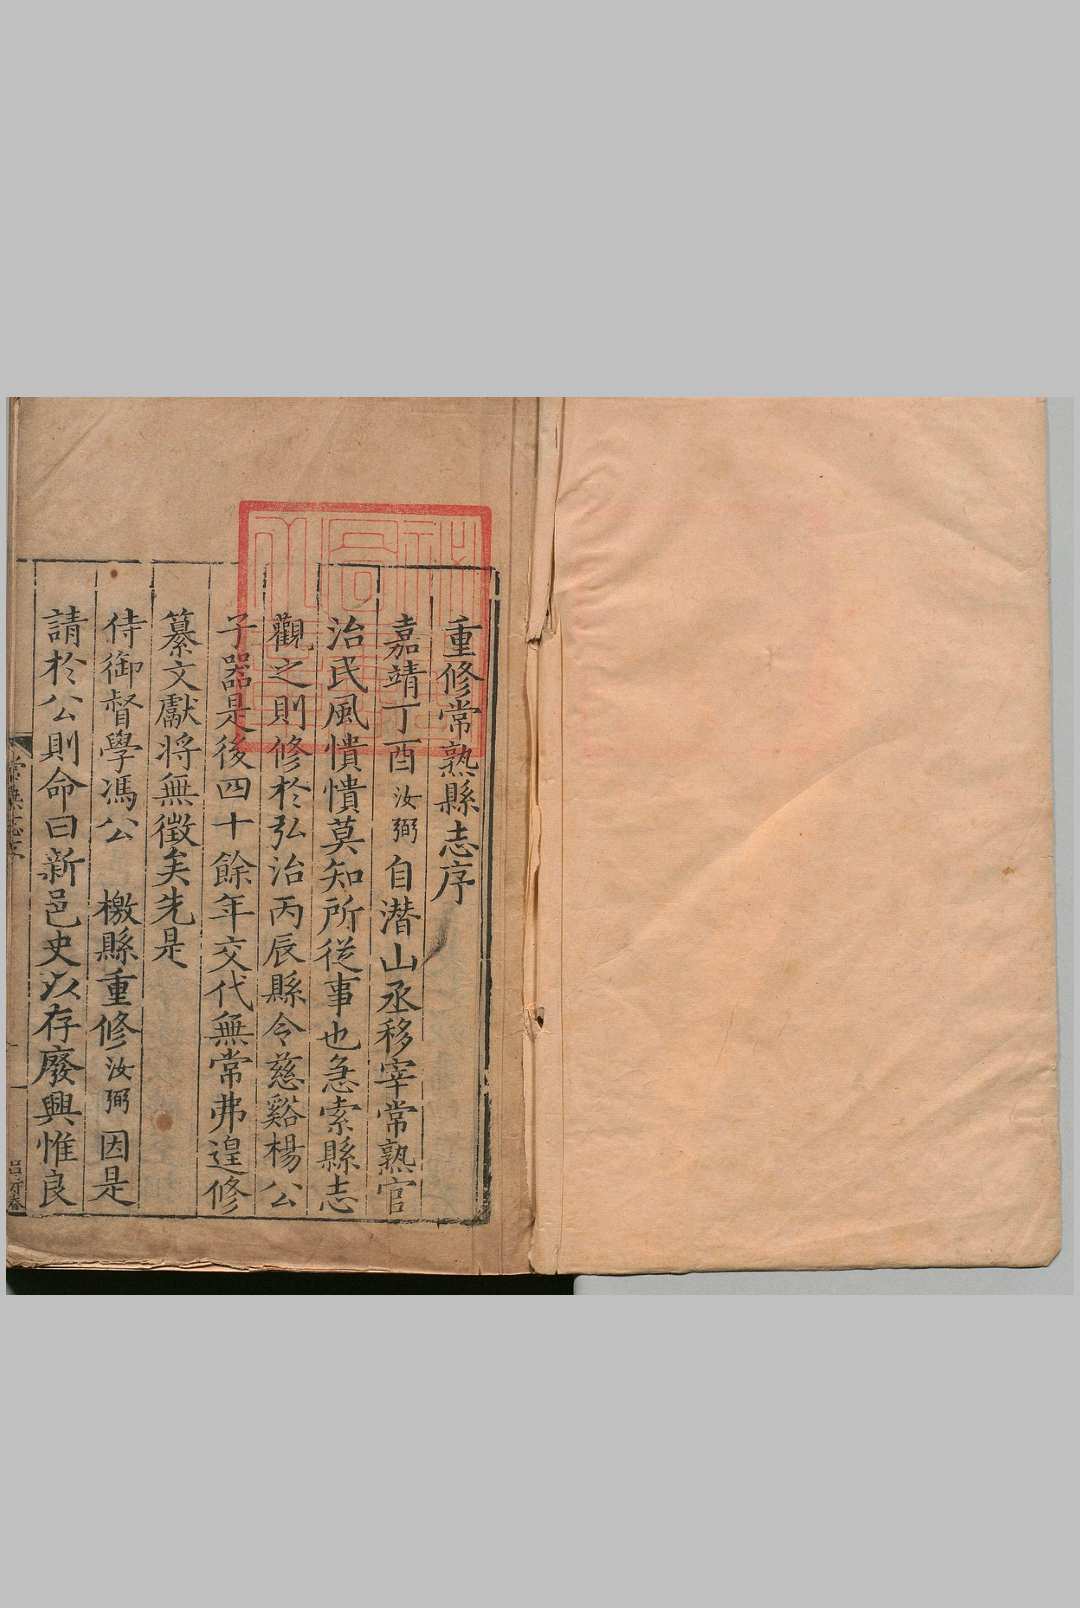 重修常熟縣志序
嘉靖丁酉汝弼自潜山丞移宰常熟官
治民風憒憒莫知所從事也急索縣志
觀之則修於弘治丙辰縣令慈谿楊公
子器是後四十餘年交代無常弗遑修
纂文獻将無徴矣先是
侍御督學馮公 檄縣重修汝弼因是
請於公則命曰新邑史以存廢興惟良